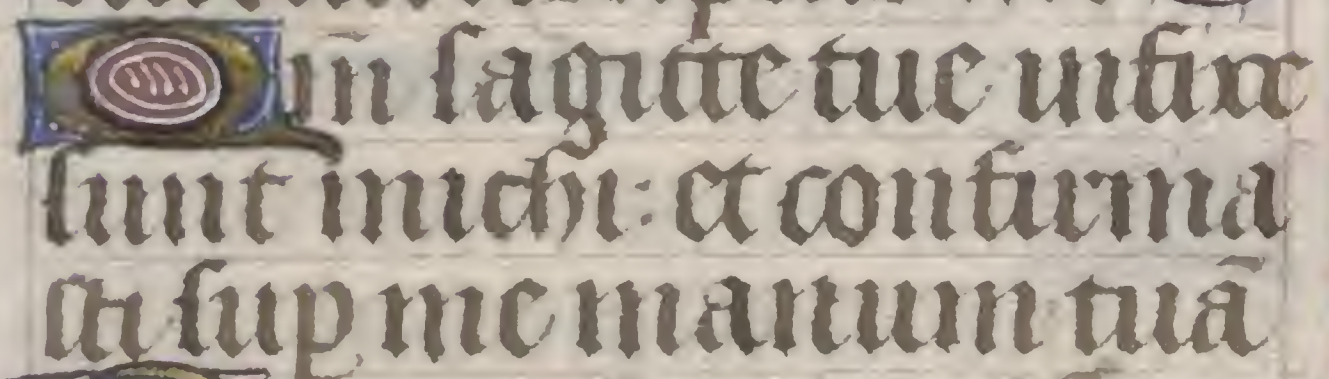 Qm̄ sagitte tue infixe
sunt michi: et confirma
sti sup me manum tuā